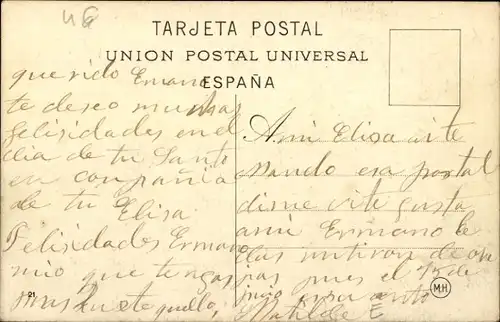 46
TARJETA POSTAL
UNION POSTAL UNIVERSAL
ESPAÑA
querido Ermano
te deseo muchas
felisidades en el
dia de tu Santo
en conpañia
de tu Elisa
Felisidades Ermano
mio que tengas
21
Ami Elisa
mando esa postal
dime si te gusta
ami Ermano le
das un tiron de ore
jas pues el 13 de
Matilde E
M.H